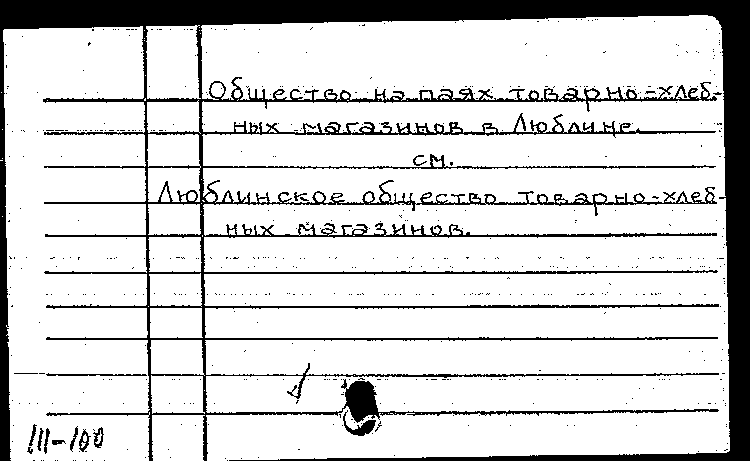 Общество на паях товарно-хлеб-
ных магазинов в Люблине.
см.
Люблинское общество товарно-хлеб-
ных магазинов.
III-100